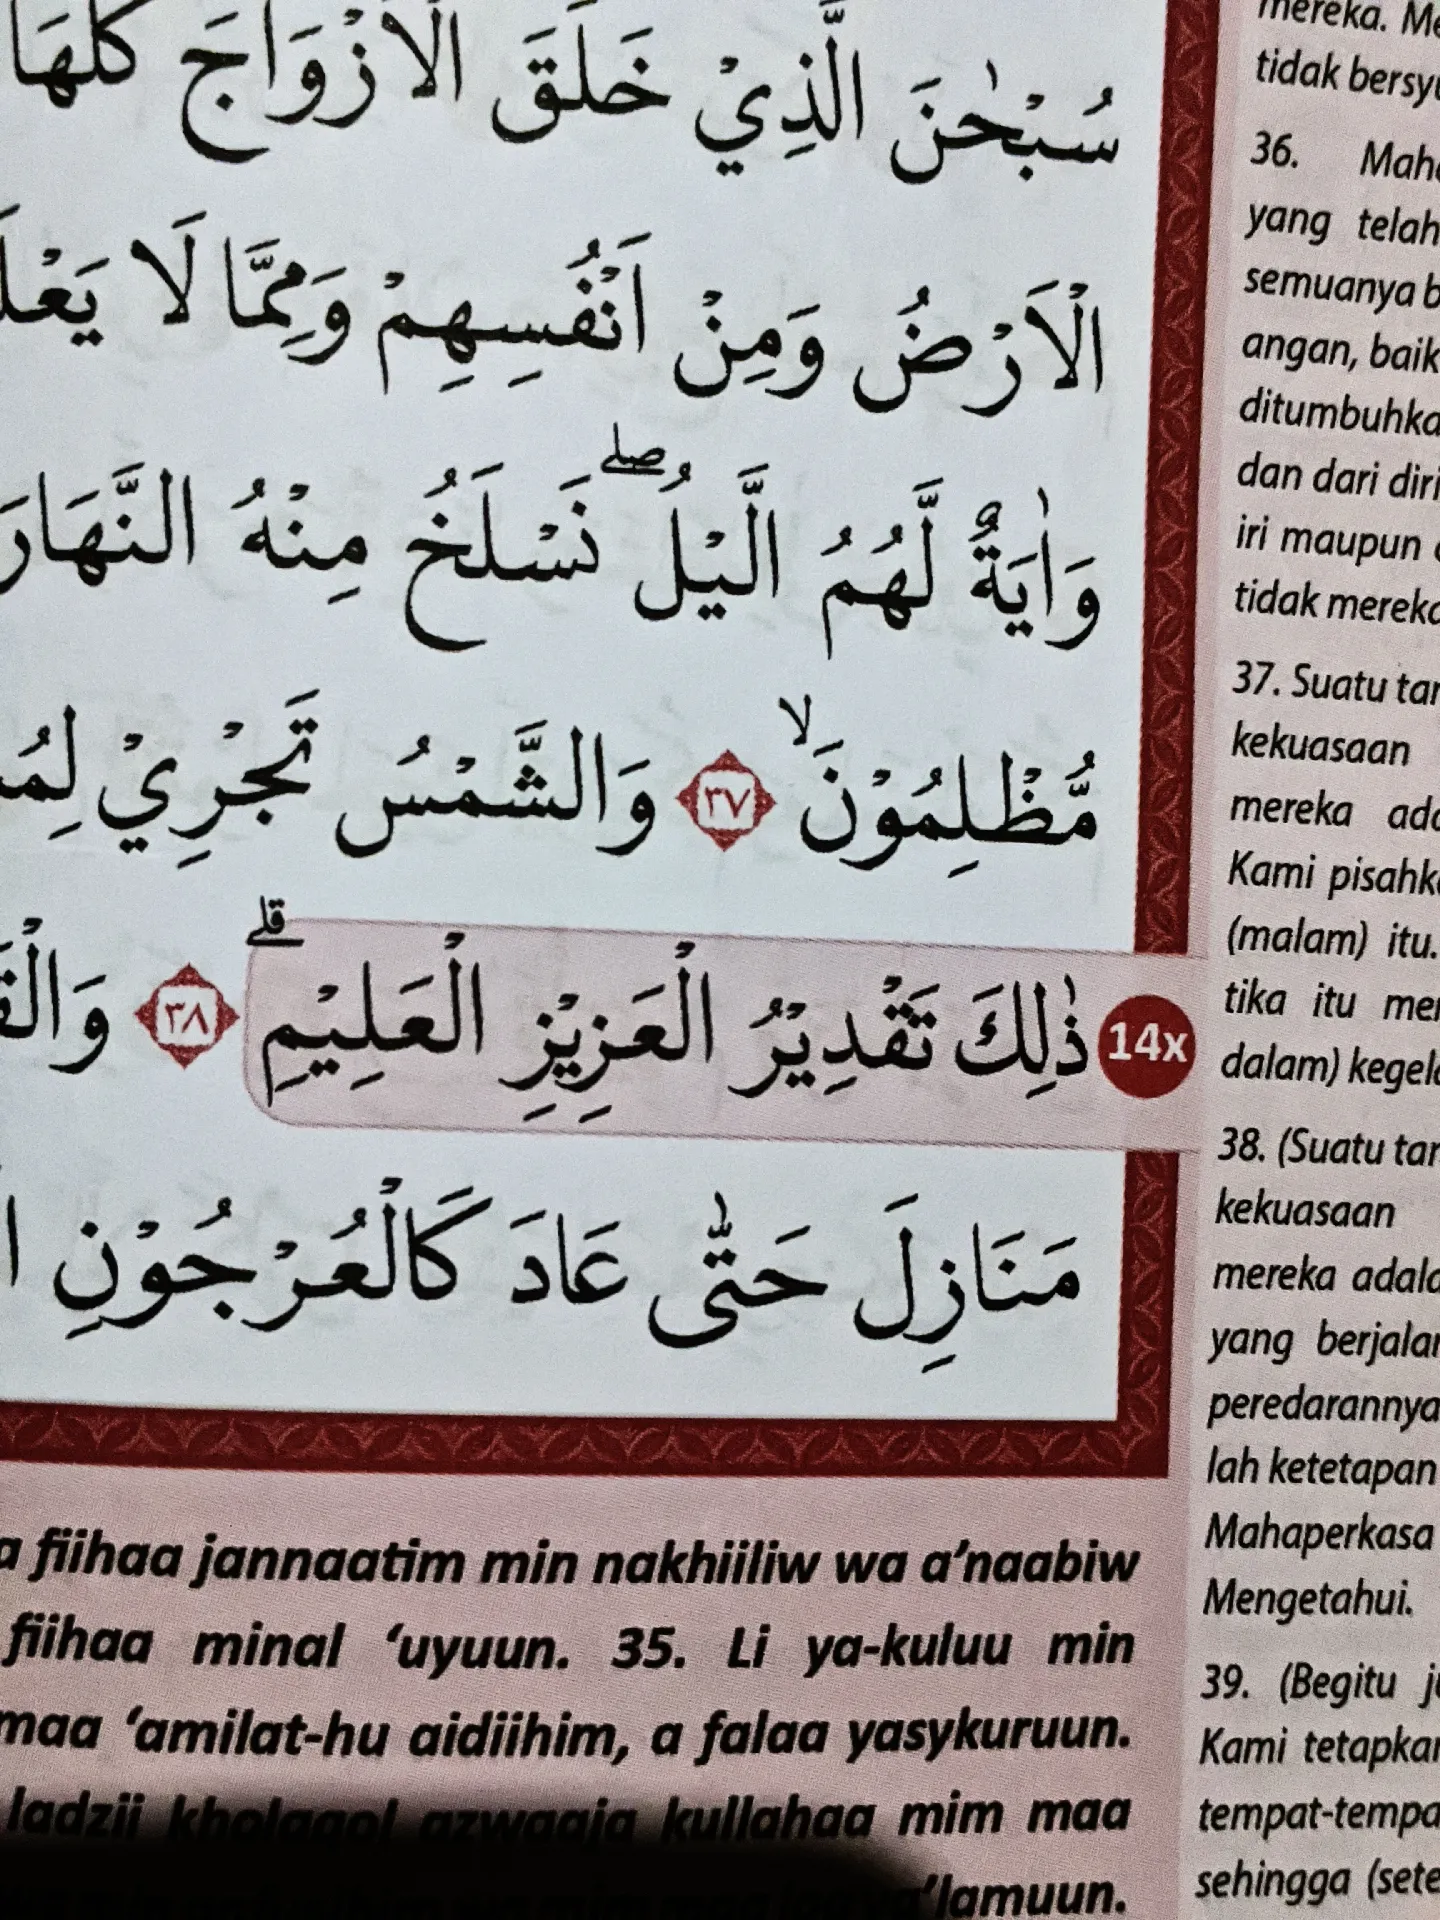 سُبْحٰنَ الَّذِيْ خَلَقَ الْاَزْوَاجَ كُلَّهَا
الْاَرْضُ وَمِنْ اَنْفُسِهِمْ وَمِمَّا لَا
وَاٰيَةٌ لَّهُمُ الَّيْلُ ۖ نَسْلَخُ مِنْهُ النَّهَارَ
مُّظْلِمُوْنَ ۙ ٣٧ وَالشَّمْسُ تَجْرِيْ
14x ذٰلِكَ تَقْدِيْرُ الْعَزِيْزِ الْعَلِيْمِ ۗ ٣٨
مَنَازِلَ حَتّٰى عَادَ كَالْعُرْجُوْنِ
a fiihaa jannaatim min nakhiiliw wa a'naabiw
fiihaa minal 'uyuun. 35. Li ya-kuluu min
maa 'amilat-hu aidiihim, a falaa yasykuruun.
ladzii kholaqol azwaaja kullahaa mim maa
mereka.
tidak
36. Maha
yang telah
semuanya b
angan, baik
ditumbuhka
dan dari diri
iri maupun
tidak mereka
37. Suatu tan
kekuasaan
mereka ada
Kami pisahka
(malam) itu.
tika itu mer
dalam) kegela
38. (Suatu tan
kekuasaan
mereka adala
yang berjalan
peredarannya
lah ketetapan
Mahaperkasa
Mengetahui.
39. (Begitu ju
Kami tetapkan
tempat-tempa
sehingga (sete